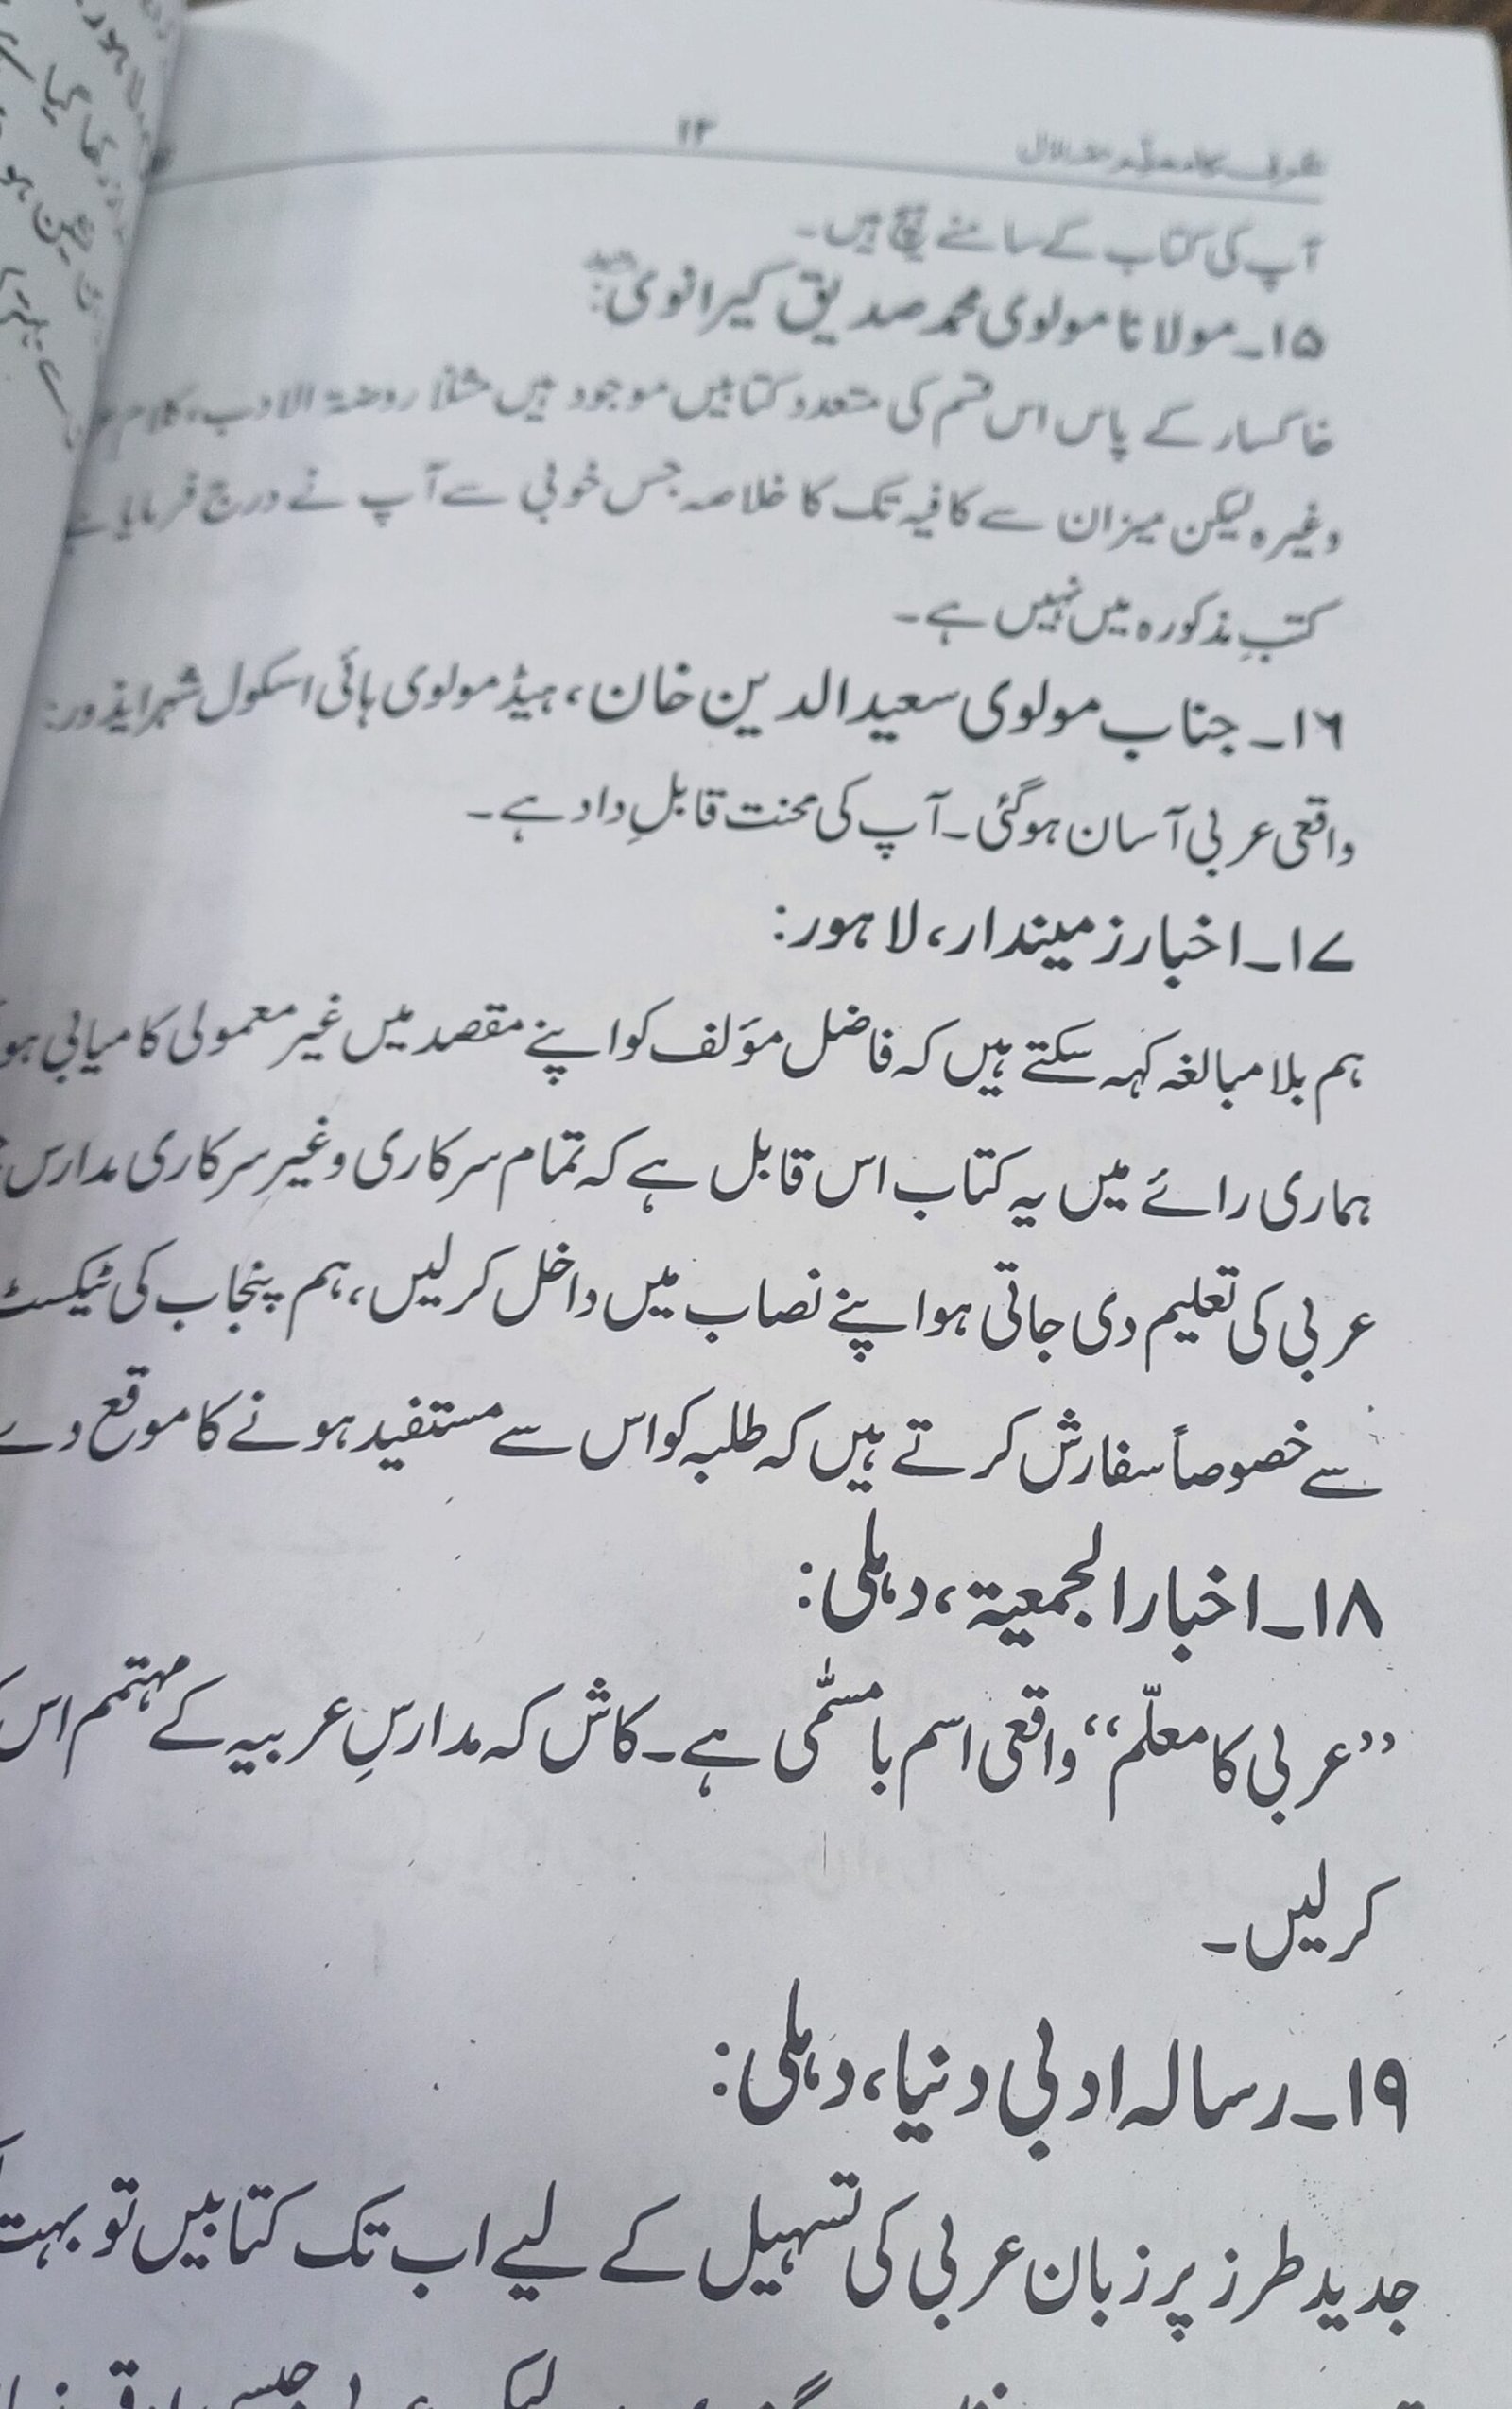 ۱۳
آپ کی کتاب کے سامنے ہیچ ہیں۔
۱۵۔ مولانا مولوی محمد صدیق کیرانوی:
خاکسار کے پاس اس قسم کی متعدد کتابیں موجود ہیں مثلاً روضۃ الادب، کلام
وغیرہ لیکن میزان سے کافیہ تک کا خلاصہ جس خوبی سے آپ نے درج فرمایا ہے
کتبِ مذکورہ میں نہیں ہے۔
۱۶۔ جناب مولوی سعید الدین خان، ہیڈ مولوی ہائی اسکول شہر
واقعی عربی آسان ہوگئی۔ آپ کی محنت قابلِ داد ہے۔
۱۷۔ اخبار زمیندار، لاہور:
ہم بلا مبالغہ کہہ سکتے ہیں کہ فاضل مؤلف کو اپنے مقصد میں غیر معمولی کامیابی
ہماری رائے میں یہ کتاب اس قابل ہے کہ تمام سرکاری وغیر سرکاری مدارس
عربی کی تعلیم دی جاتی ہو اپنے نصاب میں داخل کرلیں، ہم پنجاب کی ٹیکسٹ
سے خصوصاً سفارش کرتے ہیں کہ طلبہ کو اس سے مستفید ہونے کا موقع دے
۱۸۔ اخبار الجمعیۃ، دہلی:
”عربی کا معلّم“ واقعی اسم بامسمّٰی ہے۔ کاش کہ مدارسِ عربیہ کے مہتمم اس
کرلیں۔
۱۹۔ رسالہ ادبی دنیا، دہلی:
جدید طرز پر زبان عربی کی تسہیل کے لیے اب تک کتابیں تو بہت